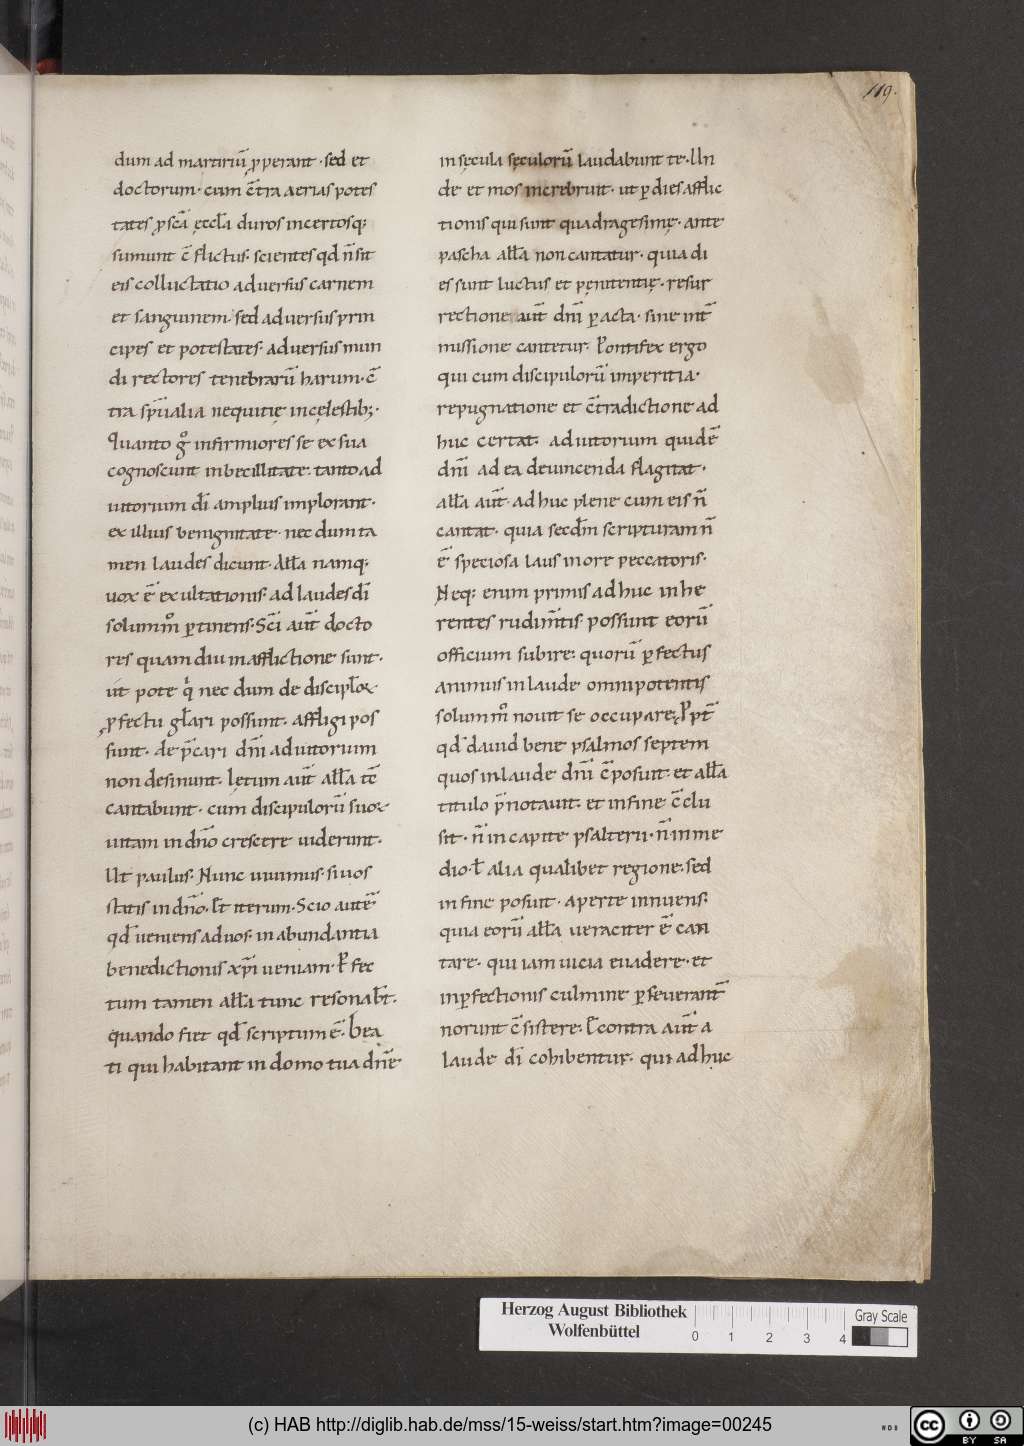 119.
dum ad martirIū ꝓperant · sed et
doctorum · cum c̄tra aerias potes
tates ꝓ scā ęccła duros incertosq;
sumunt c̄flictus · scientes qđ n̄ sit
eis colluctatio adversus carnem
et sanguinem · sed adversus prin
cipes et potestates · adversus mun
di rectores tenebrarū harum · c̄
tra sp̄ualia nequitię incęlestib; ·
Quanto gͦ infirmiores se ex sua
cognoscunt inbecillitate · tanto ad
iutorium dī amplius implorant ·
ex illius benignitate · nec dum ta
men laudes dicunt · Alła namq;
uox ē exultationis · ad laudes dī
solummͦ ꝑtinens · Scī aut̄ docto
res quam diu in afflictione sunt ·
ut pote qⁱ nec dum de discipłoꝝ
ꝓfectu głari possunt · affligi pos
sunt · de p̄cari dn̄i adiutorium
non desinunt · lętum aut̄ alła tc̄
cantabunt · cum discipulorū suoꝝ
uitam in dn̄o crescere uiderunt ·
Ut paulus · Nunc uiuimus · si uos
statis in dn̄o · Et iterum · Scio autē
qđ ueniens ad uos · in abundantia
benedictionis xp̄i ueniam · Per fec
tum tamen alła tunc resonabt̄ ·
quando fiet qđ scriptum ē · Bea
ti qui habitant in domo tua dn̄e
in sęcula sęculorū laudabunt te · Un
de et mos increbruit · ut ꝑ dies afflic
tionis qui sunt quadragesimę · ante
pascha alła non cantatur · quia di
es sunt luctus et pęnitentię · resur
rectione aut̄ dn̄i ꝑacta · sine int̄
missione cantetur · Pontifex ergo
qui cum discipulorū imperitia ·
repugnatione et c̄tradictione ad
huc certat · adiutorium quidē
dn̄i ad ea deuincenda flagitat ·
alła aut̄ · adhuc plene cum eis n̄
cantat · quia secdm̄ scripturam n̄
ē speciosa laus in ore peccatoris ·
Neq; enim primis adhuc inhe
rentes rudim̄tis possunt eorū
officium subire · quorū ꝑfectus
animus in laude omnipotentis
solummͦ nouit se occupare · Ppt̄
qđ dauid bene psalmos septem
quos in laude dn̄i c̄posuit · et alła
titulo p̄notauit · et in fine c̄clu
sit · n̄ in capite psalterii · n̄ in me
dio · ł alia qualibet regione · sed
in fine posuit · aperte innuens ·
quia eorū alła ueraciter ē can
tare · qui iam uicia euadere · et
inꝑfectionis culmine ꝑseuerant̄
norunt c̄sistere · E contra aut̄ a
laude dī cohibentur · qui adhuc
Herzog August Bibliothek
Wolfenbüttel
0 1 2 3 4
Gray Scale
(c) HAB http://diglib.hab.de/mss/15-weiss/start.htm?image=00245
cc BY SA